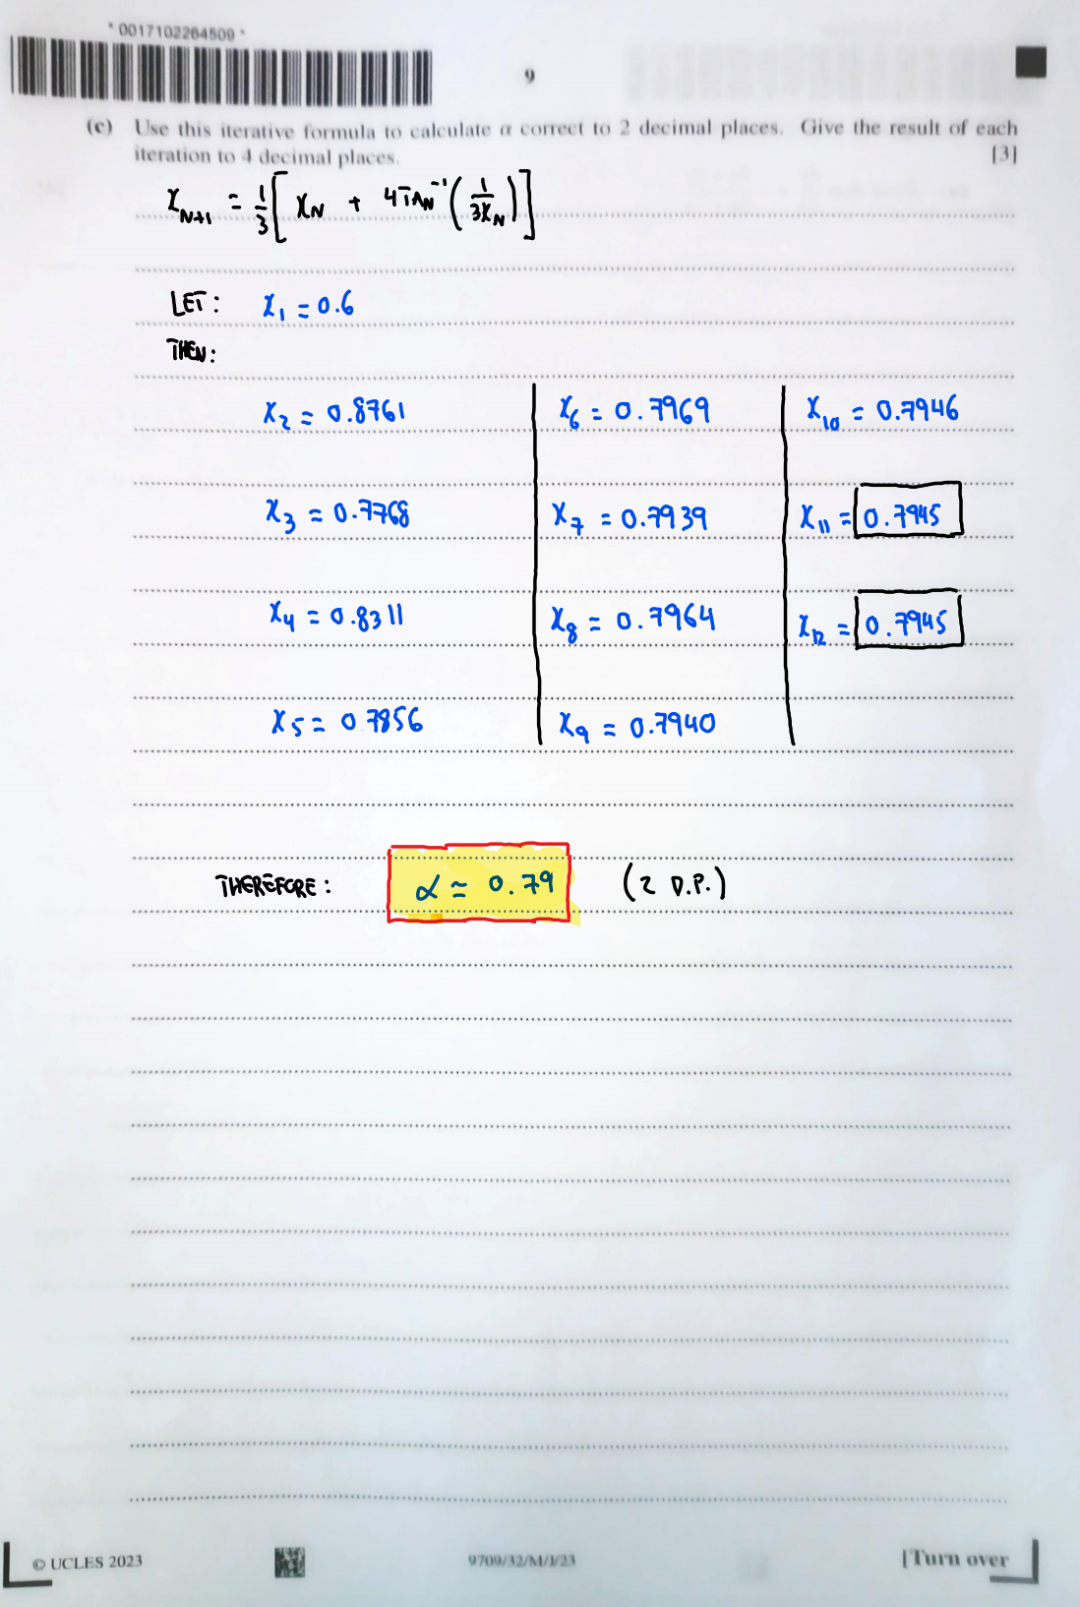 * 0017102264509 *
9
(c) Use this iterative formula to calculate α correct to 2 decimal places. Give the result of each
iteration to 4 decimal places. [3]
X_{N+1} = 1/3 [ X_N + 4TAN⁻¹ ( 1/3X_N ) ]
LET: X₁ = 0.6
THEN:
X₂ = 0.8761 X₆ = 0.7969 X₁₀ = 0.7946
X₃ = 0.7768 X₇ = 0.7939 X₁₁ = 0.7945
X₄ = 0.8311 X₈ = 0.7964 X₁₂ = 0.7945
X₅ = 0.7856 X₉ = 0.7940
THEREFORE: α = 0.79 (2 D.P.)
© UCLES 2023 9709/32/M/J/23 [Turn over